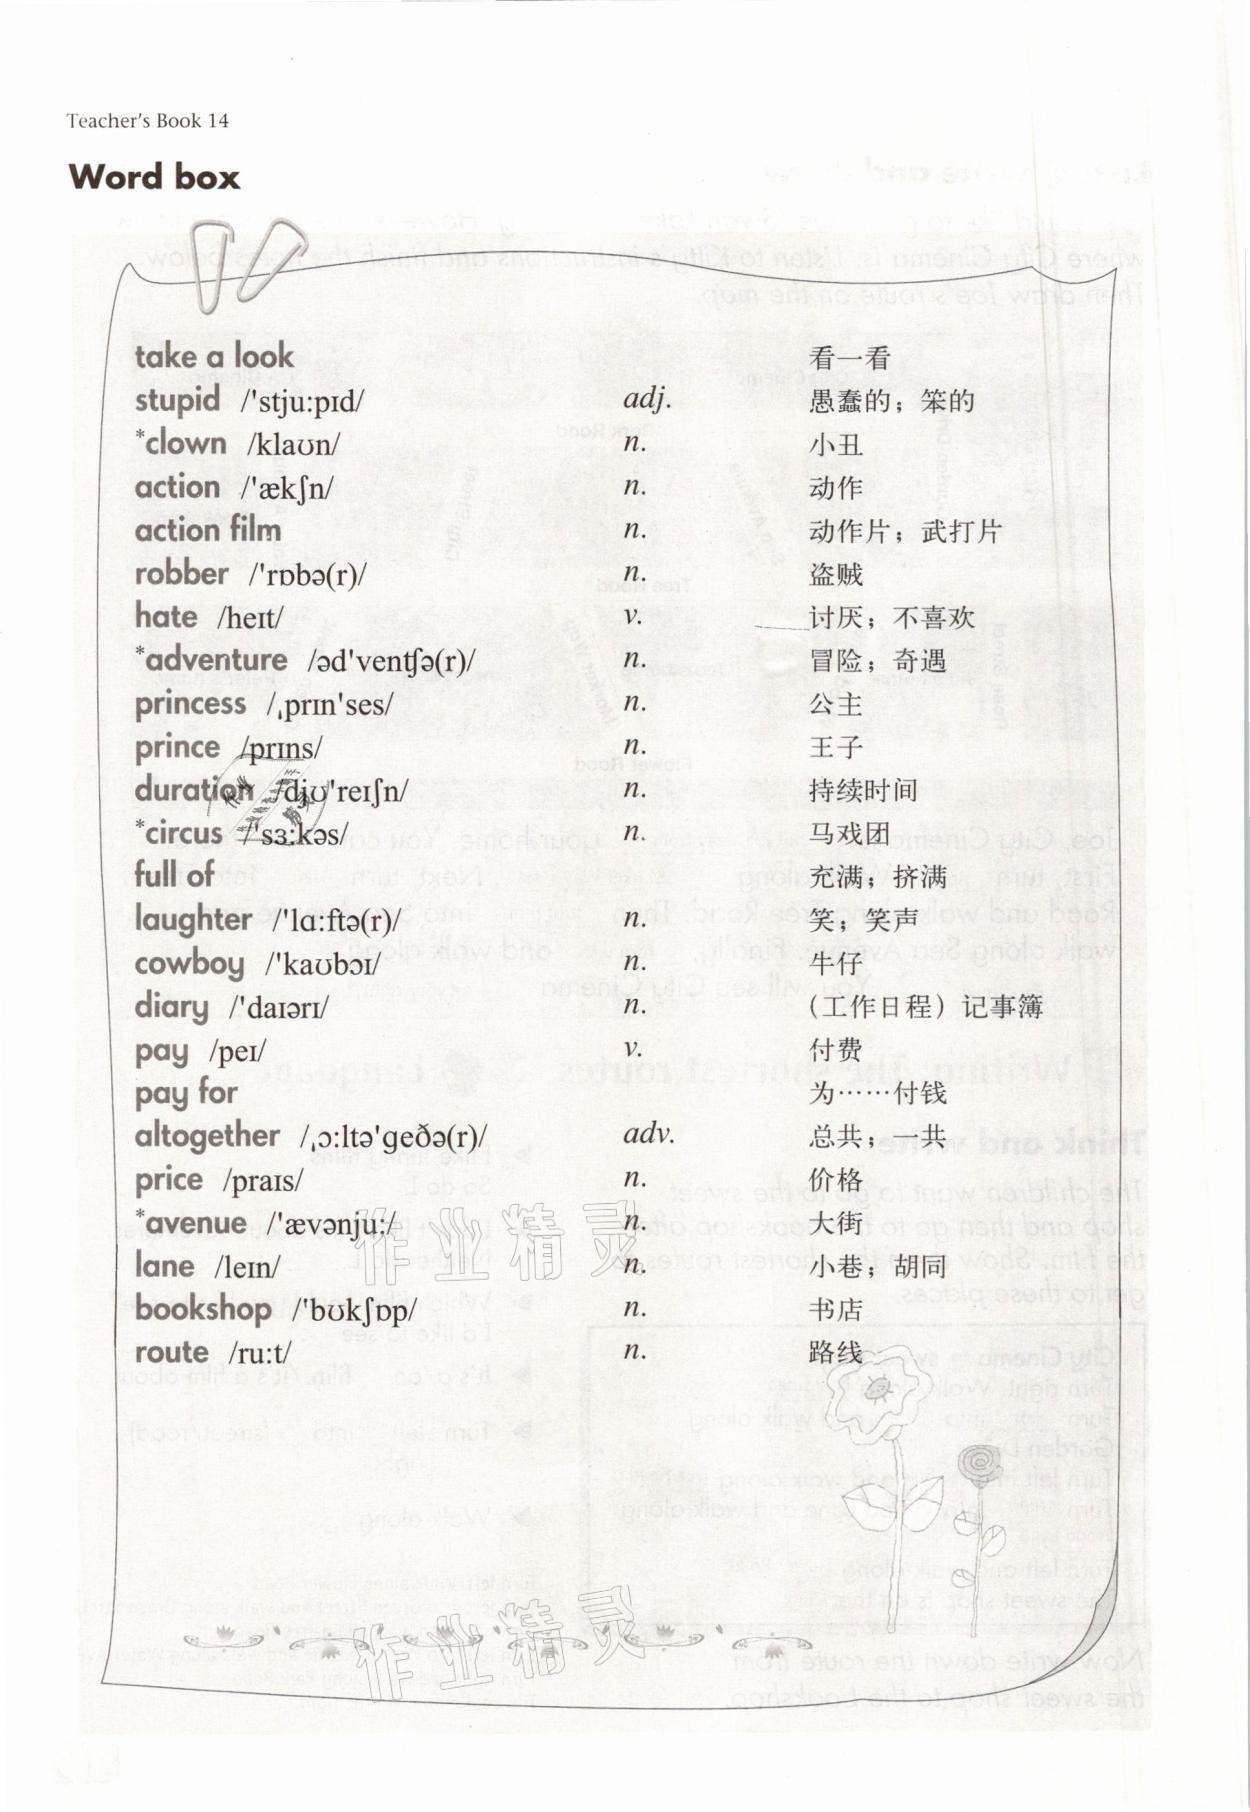 Teacher's Book 14
Word box
take a look 看一看
stupid /'stju:pɪd/ adj. 愚蠢的；笨的
*clown /klaʊn/ n. 小丑
action /'ækʃn/ n. 动作
action film n. 动作片；武打片
robber /'rɒbə(r)/ n. 盗贼
hate /heɪt/ v. 讨厌；不喜欢
*adventure /əd'ventʃə(r)/ n. 冒险；奇遇
princess /ˌprɪn'ses/ n. 公主
prince /prɪns/ n. 王子
duration /djʊ'reɪʃn/ n. 持续时间
*circus /'sɜ:kəs/ n. 马戏团
full of 充满；挤满
laughter /'lɑ:ftə(r)/ n. 笑；笑声
cowboy /'kaʊbɔɪ/ n. 牛仔
diary /'daɪərɪ/ n. （工作日程）记事簿
pay /peɪ/ v. 付费
pay for 为……付钱
altogether /ˌɔ:ltə'geðə(r)/ adv. 总共；一共
price /praɪs/ n. 价格
*avenue /'ævənju:/ n. 大街
lane /leɪn/ n. 小巷；胡同
bookshop /'bʊkʃɒp/ n. 书店
route /ru:t/ n. 路线
作业精灵
作业精灵